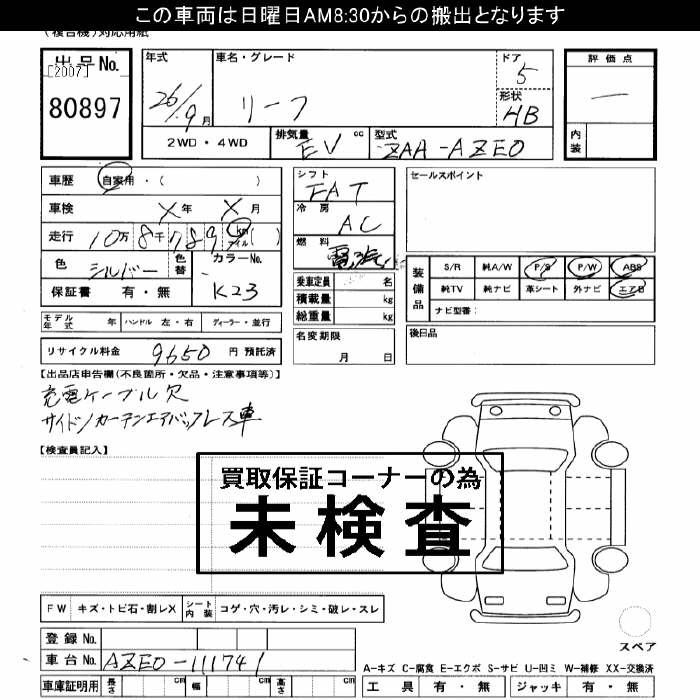 この車両は日曜日AM8:30からの搬出となります
(複合機)対応用紙
出品No.
[2007]
80897
年式
26/9月
車名・グレード
リーフ
ドア
5
形状
HB
評価点
―
内装
2WD・4WD
排気量 EV cc
型式 ZAA-AZE0
車歴 自家用・( )
車検 X年 X月
走行 10万8千789 km マイル( )
色 シルバー
色替
カラーNo. K23
保証書 有・無
シフト
FAT
冷房
AC
燃料
乗車定員 名
積載量 kg
総重量 kg
セールスポイント
装備品
S/R 純A/W P/S P/W ABS
純TV 純ナビ 革シート 外ナビ エアB
ナビ型番:
モデル年式 年 ハンドル 左・右 ディーラー・並行
リサイクル料金 9650 円 預託済
名変期限
月 日
後日品
【出品店申告欄(不良箇所・欠品・注意事項等)】
充電ケーブル欠
サイド/カーテンエアバックレス車
【検査員記入】
買取保証コーナーの為
未検査
FW キズ・トビ石・割レX シート内装 コゲ・穴・汚レ・シミ・破レ・スレ
登録No.
車台No. AZE0-111741
車庫証明用 長さ cm 幅 cm 高さ cm
スペア
A-キズ C-腐食 E-エクボ S-サビ U-凹ミ W-補修 XX-交換済
工具 有・無 ジャッキ 有・無